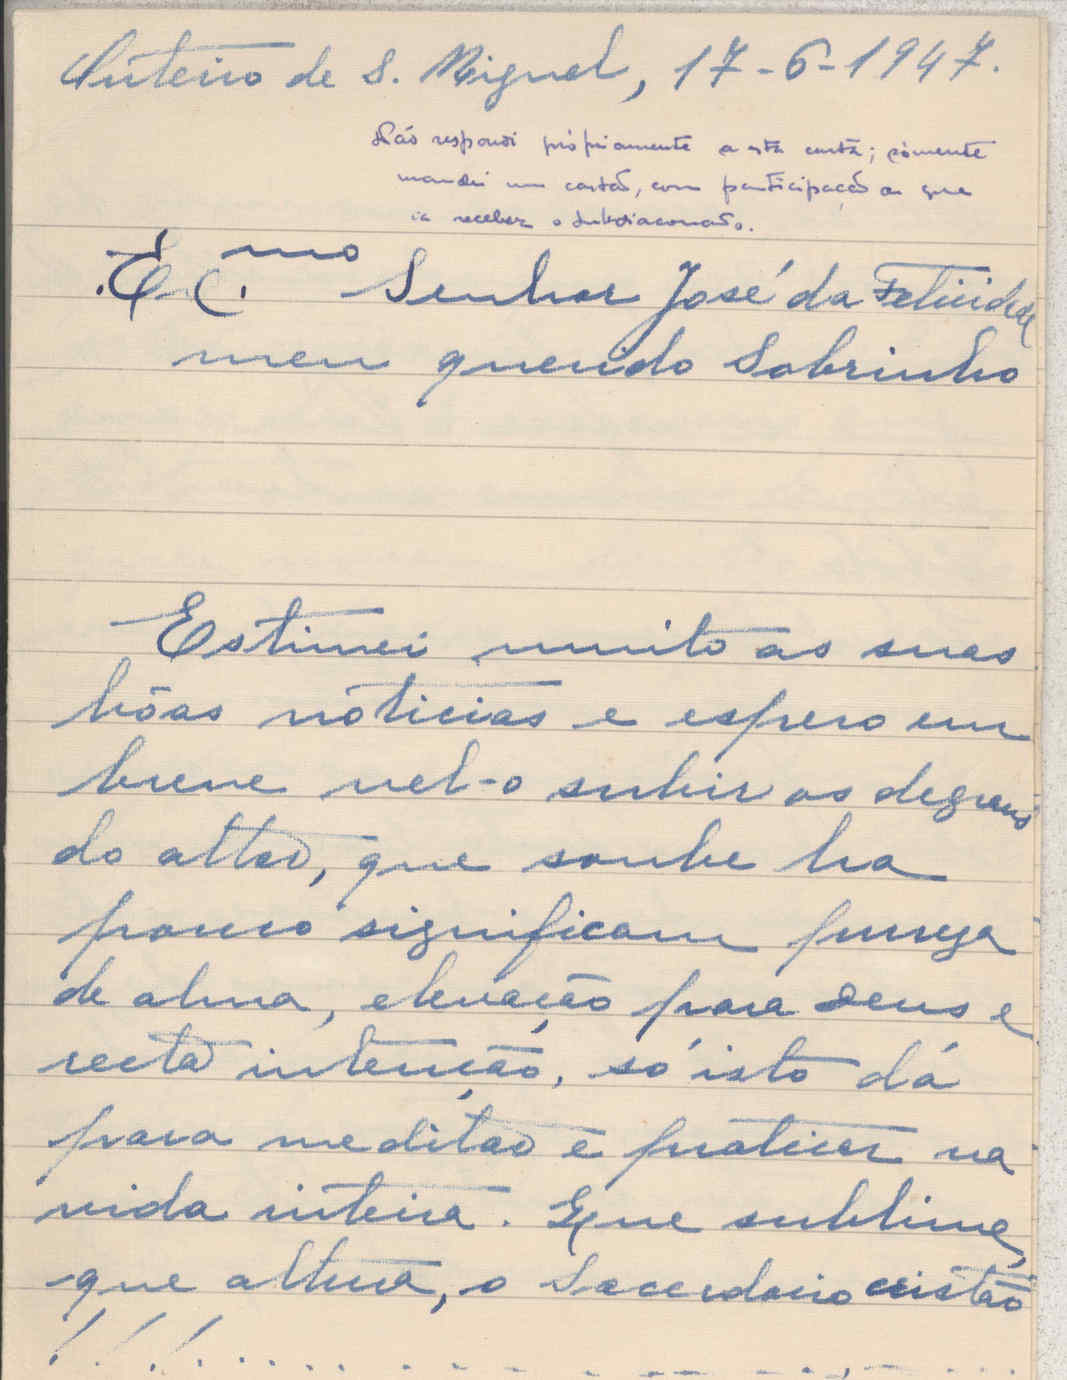 Outeiro de S. Miguel, 17-6-1947.
Não respondi pròpriamente a esta carta; sòmente
mandei um cartão, com participação de que
ia receber o Subdiaconado.
Ex.mo Senhor José da Felicidade
meu querido Sobrinho
Estimei muito as suas
bôas nóticias e espero em
breve vel-o subir os degraus
do altar, que soube ha
pouco significam pureza
de alma, elevação para Deus e
recta intenção, só isto dá
para meditar e praticar na
vida inteira. Que sublime,
que altura, o Sacerdocio cristão
! ! ! . . . . . . . . . . . . . . .